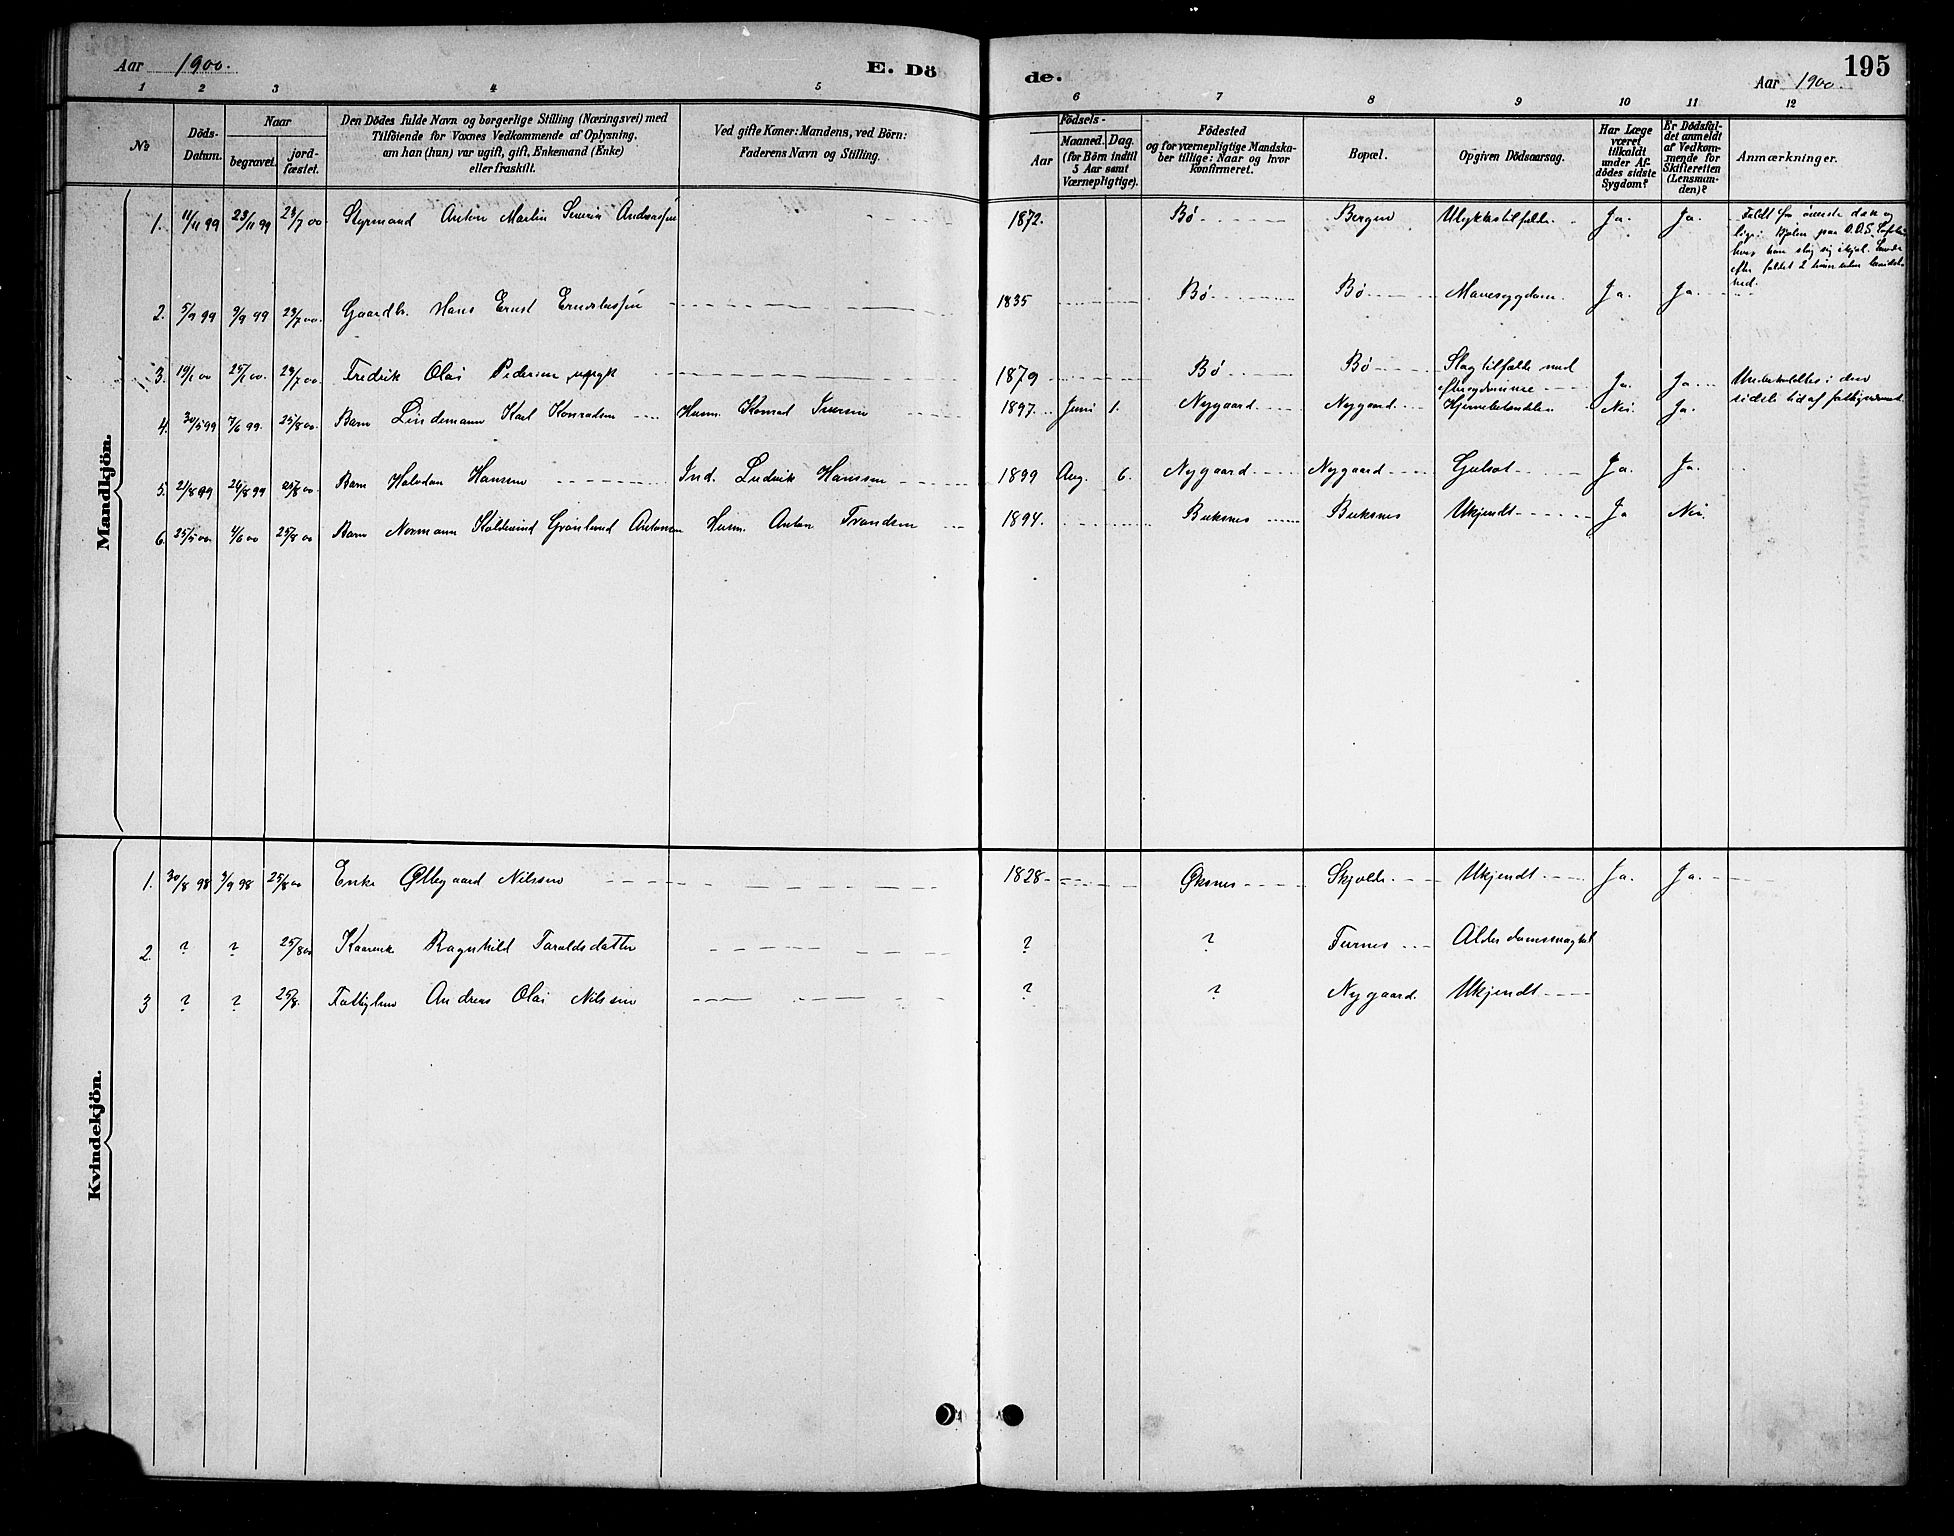 Aar 1900.
E. Dö
de.
Aar 1900.
195
1 2 3 4 5 6 7 8 9 10 11 12
No
Döds-Datum.
Naar
begravet.
jord-fæstet.
Den Dödes fulde Navn og borgerlige Stilling (Næringsvei) med
Tilföiende for Voxnes Vedkommende af Oplysning,
om han (hun) var ugift, gift, Enkemand (Enke)
eller fraskilt.
Ved gifte Koner: Mandens, ved Börn:
Faderens Navn og Stilling.
Födsels-
Aar
Maaned. Dag.
(for Börn indtil
5 Aar samt
Værnepligtige).
Födested
og for værnepligtige Mandska-
ber tillige: Naar og hvor
konfirmeret.
Bopæl.
Opgiven Dödsaarsag.
Har Læge
været
tilkaldt
under Af-
dödes sidste
Sygdom?
Er Dödsfal-
det anmeldt
af Vedkom-
mende for
Skifteretten
(Lensman-
den)?
Anmærkninger.
Mandkjön.
1. 11/11 99 23/11 99 23/7 00 Styrmand Anton Martin Severin Andreassen 1872. Bø Bergen Ulykkestilfælde Ja. Ja. Faldt fra øverste dæk og
hvor han slog sig ihjel. Levede
efter faldet 2 timer uden bevidst-
hed.
2. 5/9 99 9/9 99 23/7 00. Gaardbr. Hans Ernst Ernstassen 1835 Bø Bø Mavesygdom. Ja. Ja.
3. 19/1 00 25/1 00. 23/7 00. Fredrik Olai Pedersen, ugift 1879 Bø Bø Slagtilfælde med
Ja. Ja. Underholdtes i den
sidste tid af fattigvæsenet.
4. 30/5 99 7/6 99. 25/8 00. Barn Lindemann Karl Konradsen Husm. Konrad Iversen 1897. Juni 1. Nygaard Nygaard Hjernebetændelse Nei. Ja.
5. 21/8 99 26/8 99 25/8 00. Barn Halvdan Hansen Ind. Ludvik Hanssen 1899 Aug. 6. Nygaard Nygaard Gulsot Ja. Ja.
6. 25/5 00 4/6 00 25/8 00 Barn Normann Grønlund Antonsen Husm. Anton Trondsen 1894. Buksnes Buksnes Ukjendt Ja Nei.
Kvindekjön.
1. 30/8 98 3/9 98 25/8 00 Enke Øllegaard Nilssen 1828 Øksnes Skjolde Ukjendt Ja. Ja.
2. ? ? 25/8 00 Kaarenke Ragnhild Taraldsdatter ? ? Turnes Alderdomssvaghet
3 ? ? 25/8. Fattiglem Anders Olai Nilssen ? ? Nygaard. Ukjendt